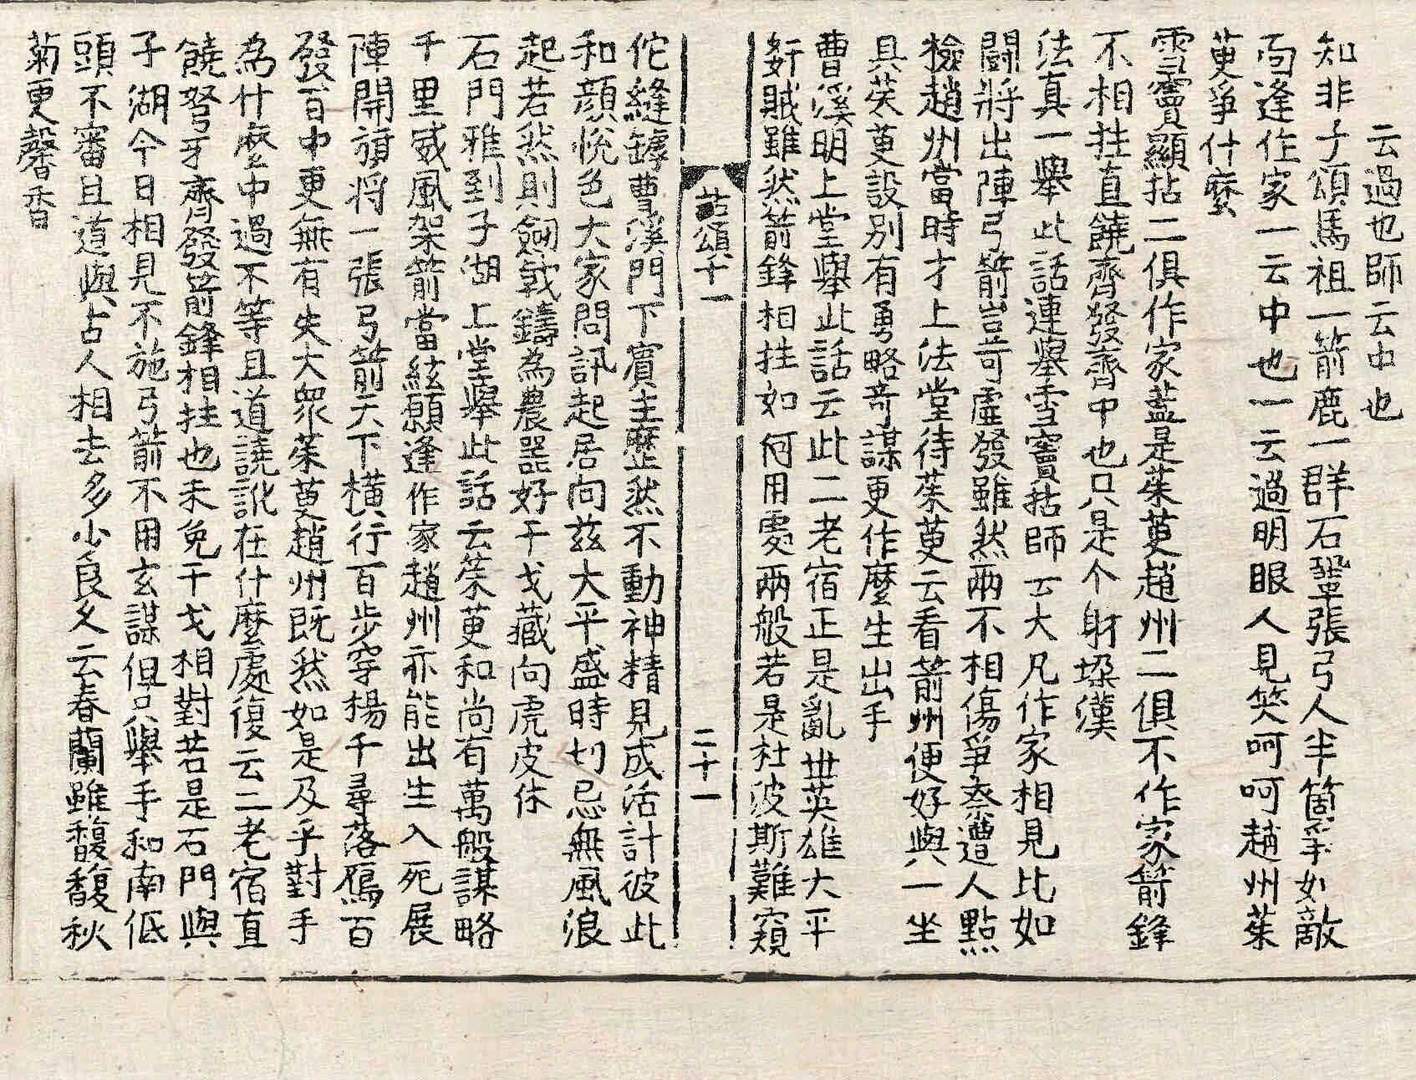 云過也師云中也
知非子頌馬祖一箭鹿一群石鞏張弓人半箇爭如敵
而逢作家一云中也一云過明眼人見笑呵呵趙州茱
萸爭什麼
雪竇顯拈二俱作家蓋是茱萸趙州二俱不作家箭鋒
不相拄直饒齊發齊中也只是个射垛漢
法真一舉此話連舉雪竇拈師云大凡作家相見比如
鬪將出陣弓箭豈可虛發雖然兩不相傷爭柰遭人點
檢趙州當時才上法堂待茱萸云看箭州便好與一坐
具茱萸設別有勇略奇謀更作麼生出手
曹溪明上堂舉此話云此二老宿正是亂世英雄大平
奸賊雖然箭鋒相拄如何用處兩般若是杜波斯難窺
拈頌十一
二十一
佗縫罅曹溪門下賓主歷然不動神精見成活計彼此
和顔悅色大家問訊起居向茲大平盛時切忌無風浪
起若然則劒戟鑄為農器好干戈藏向虎皮休
石門雅到子湖上堂舉此話云茱萸和尚有萬般謀略
千里威風架箭當絃願逢作家趙州亦能出生入死展
陣開旗將一張弓箭天下橫行百步穿楊千尋落鴈百
發百中更無有失大衆茱萸趙州旣然如是及乎對手
為什麼中過不等且道譊訛在什麼處復云二老宿直
饒弩牙齊發箭鋒相拄也未免干戈相對若是石門與
子湖今日相見不施弓箭不用玄謀但只舉手和南低
頭不審且道與古人相去多少良久云春蘭雖馥馥秋
菊更馨香